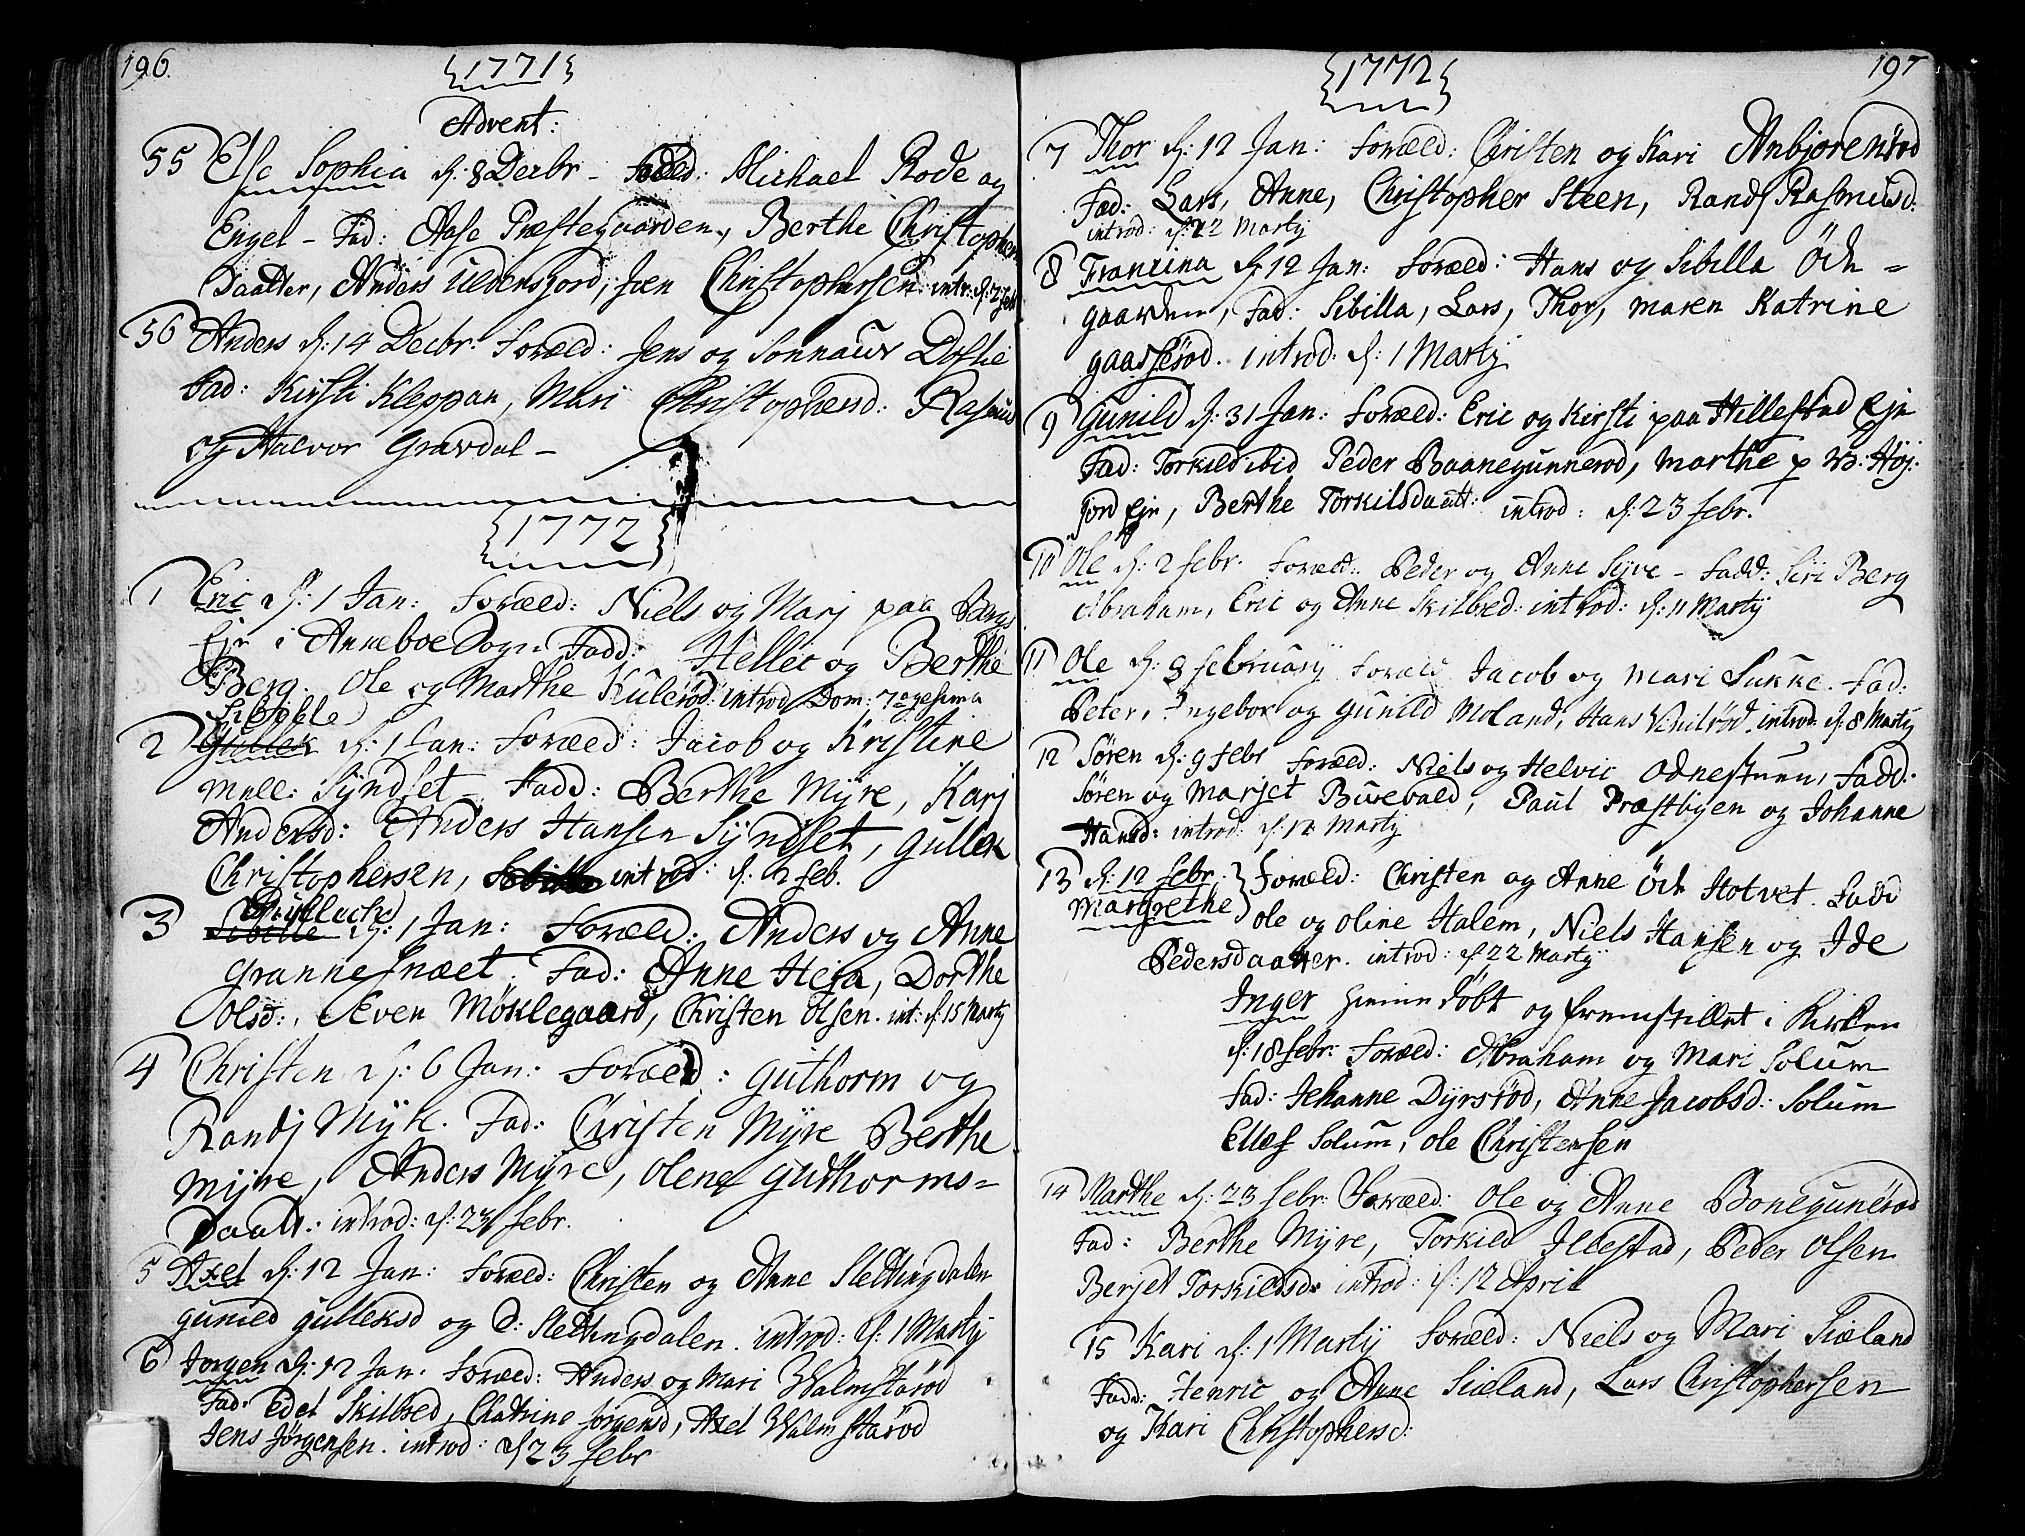 196.
{1771}
Advent:
55 Else Sophia d: 8 Decbr – Foræld: Michael Rode og
Engel – Fad: Aase Præstegaarden, Berthe Christophers
Daatter, Anders Uldensjord, Jæn Christophersen intr: d: 2 feb
56 Anders d: 14 Decbr. Foræld: Jens og Sonnauv Doflie
Fad: Kirsti Kleppan, Mari Christophersd: Rasmus
og Halvor Gravdal –
{1772}
1 Eric d: 1 Jan: Foræld: Niels og Marj paa Bergs
Ejn i Anneboe Sogn Fadd: Hellec og Berthe
Berg. Ole og Marthe Kulerød: introd Dom: 7agesima
Sibille
2 Gullek d: 1 Jan: Foræld: Jacob og Kristine
Mell: Syndset – Fadd: Berthe Myre, Karj
Andersd: Anders Hansen Syndset, Gullek
Christophersen, introd: d: 2 feb.
Gulleck
3 Sibille d: 1 Jan: Foræld: Anders og Anne
Grannesnæet. Fad: Anne Heja, Dorthe
Olsd:, Even Möklegaard, Christen Olsen. int: d: 15 Martj
4 Christen d: 6 Jan: Foræld: Guthorm og
Randj Myk. Fad: Christen Myre Berthe
Myre, Anders Myre, Olene Guthorms-
daatt: introd: d: 23 febr.
5 Axel d: 12 Jan: Foræld: Christen og Anne Slettingdalen
Gunild Gulleksd og D: Slettingdalen. introd: d: 1 Martj
6 Jørgen d: 12 Jan. Foræld: Anders og Mari Walmstarød
Fad: Edel Skilbred, Chatrine Jørgensd, Axel Walmstarød
Jens Jørgensen. introd: d 23 febr
{1772} 197
7 Thor d: 12 Jan: Foræld: Christen og Kari Anbjorensrød
Fad: Lars, Anne, Christopher Steen, Randj Rasmusd:
introd: d: 22 Martj
8 Francina d: 12 Jan: Foræld: Hans og Sibilla Öde-
gaarden, Fad: Sibilla, Lars, Thor, Maren Katrine
Gaasserød. introd: d: 1 Martj
9 Gunild d: 31 Jan: Foræld: Eric og Kirsti paa Hillestad Ejn
Fad: Torkild ibid Peder Baanegunnerød, Marthe p W. Høj-
jord Ejn, Berthe Torkilsdaatt: introd: d: 23 febr.
10 Ole d: 2 febr. Foræld: Peder og Anne Syve – Fadd: Siri Berg
Abraham, Eric og Anne Skilbred: introd: d: 11 Martj
11 Ole d: 8 februarij Foræld Jacob og Mari Sukke. Fad:
Peter, Ingebor og Gunild Moland, Hans introd: d: 8 Martj
12 Søren d: 9 febr Foræld: Niels og Helvic Odnestuen, Fadd:
Søren og Marjet Burevald, Paul Præstbyen og Johanne
Hansd: introd: d: 12 Martj
13 d: 12 febr. } Foræld: Christen og Anne Öde Hotvet. Fadd
Margrethe } Ole og Oline Halem, Niels Hansen og Ide
Pedersdaatter. introd: d 22 Martj
Inger hjemme døbt og fremstillet i Kirken
d: 18 febr: Foræld: Abraham og Mari Solum
Fad: Jehanne Dyrsrød, Anne Jacobsd: Solum
Ellef Solum, Ole Christensen
14 Marthe d: 23 febr: Foræld: Ole og Anne Bonegunerød
Fad: Berthe Myre, Torkild Illestad, Peder Olsen
Berjet Torkildsd: introd: d: 12 April
15 Kari d: 1 Martij Foræld: Niels og Mari Siæland
Fadd: Henric og Anne Siæland, Lars Christophersen
og Kari Christophersd: